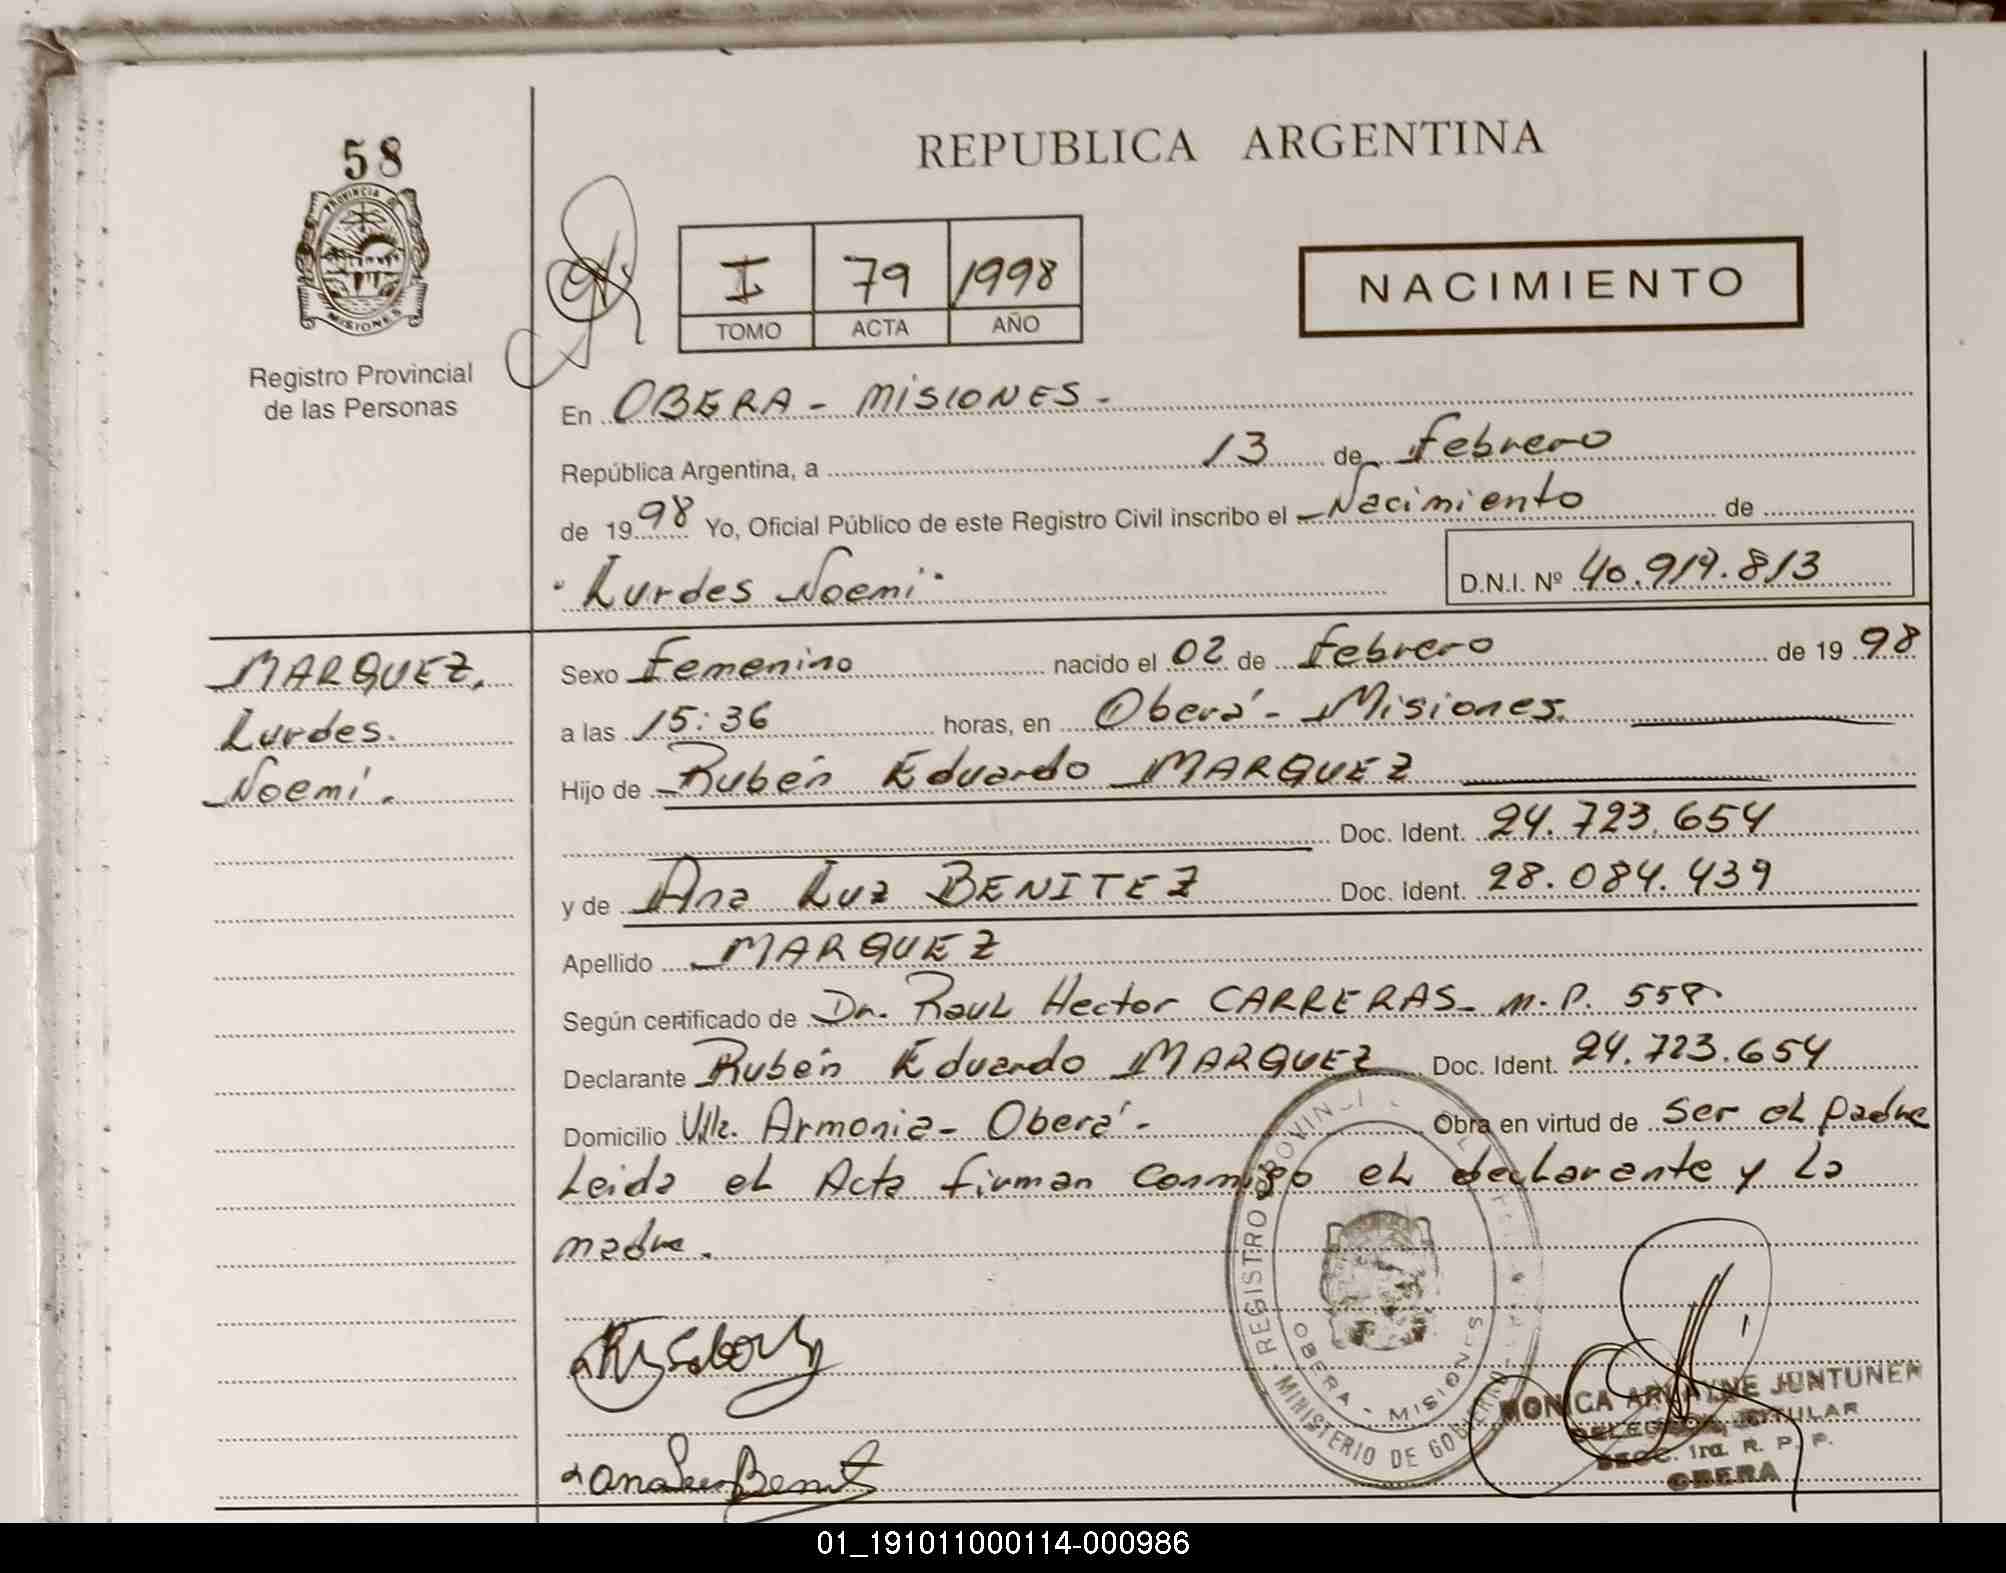 58
PROVINCIA DE
MISIONES
Registro Provincial
de las Personas
REPUBLICA ARGENTINA
I 79 1998
TOMO ACTA AÑO
NACIMIENTO
En OBERA - MISIONES -
República Argentina, a 13 de Febrero
de 1998 Yo, Oficial Público de este Registro Civil inscribo el Nacimiento de
"Lurdes Noemi"
D.N.I. Nº 40.919.813
MARQUEZ,
Lurdes.
Noemí.
Sexo Femenino nacido el 02 de Febrero de 1998
a las 15:36 horas, en Oberá - Misiones.
Hijo de Rubén Eduardo MARQUEZ
Doc. Ident. 24.723.654
y de Ana Luz BENITEZ Doc. Ident. 28.084.439
Apellido MARQUEZ
Según certificado de Dr. Raul Hector CARRERAS - M.P. 558.
Declarante Rubén Eduardo MARQUEZ Doc. Ident. 24.723.654
Domicilio Villa Armonia - Oberá - Obra en virtud de ser el padre
Leida el Acta firman conmigo el declarante y la
madre.
REGISTRO PROVINCIAL
MINISTERIO DE GOBIERNO
OBERA - MISIONES
MONICA JUNTUNEN
TITULAR
SECC. 1ra. R. P. P.
OBERA
01_191011000114-000986